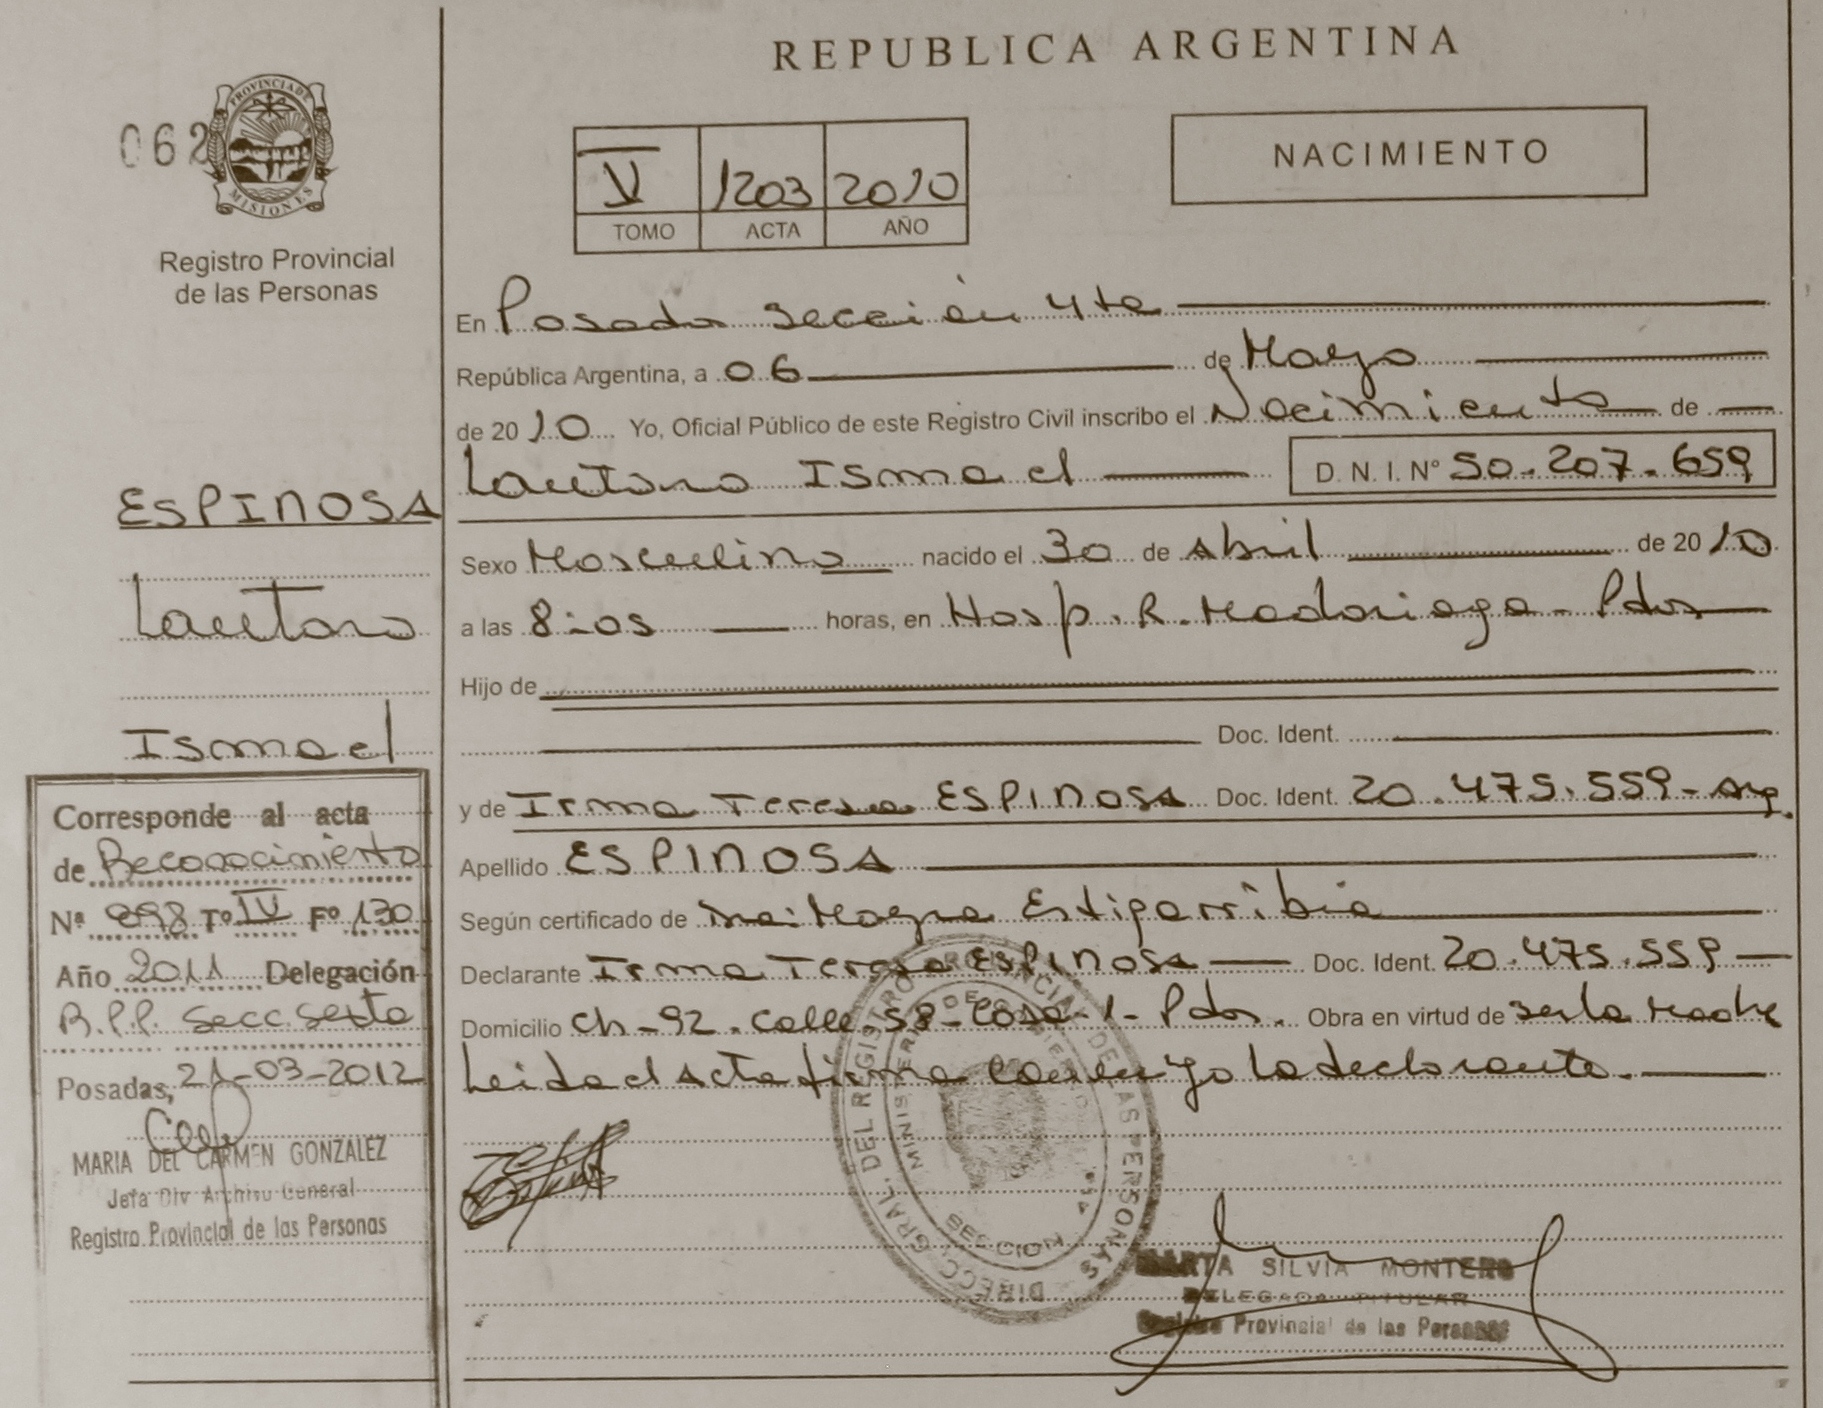 REPUBLICA ARGENTINA
062
PROVINCIA DE MISIONES
Registro Provincial
de las Personas
NACIMIENTO
V 1203 2010
TOMO ACTA AÑO
En Posadas Sección 4ta
República Argentina, a 06 de Mayo
de 2010 Yo, Oficial Público de este Registro Civil inscribo el Nacimiento de
Lautaro Ismael D.N.I. Nº 50.207.659
Sexo Masculino nacido el 30 de Abril de 2010
a las 8:05 horas, en Hosp. R. Madariaga - Pdas
Hijo de
Doc. Ident.
y de Irma Teresa ESPINOSA Doc. Ident. 20.475.559 - Arg.
Apellido ESPINOSA
Según certificado de Estigarribia
Declarante Irma Teresa ESPINOSA Doc. Ident. 20.475.559
Domicilio Ch-92. Calle 58-Casa-1- Pdas. Obra en virtud de ser la madre
Leida el Acta firma conmigo la declarante.
ESPINOSA
Lautaro
Ismael
Corresponde al acta
de Reconocimiento
Nº 898 Tº IV Fº 130
Año 2011 Delegación
R.P.P. Secc. Sexta
Posadas, 21-03-2012
MARIA DEL CARMEN GONZALEZ
Jefa Div Archivo General
Registro Provincial de las Personas
DIRECC. GRAL. DEL REGISTRO PROVINCIAL DE LAS PERSONAS
MINISTERIO DE GOBIERNO
SECCION 4ª
MARTA SILVIA MONTERO
DELEGADA TITULAR
Registro Provincial de las Personas